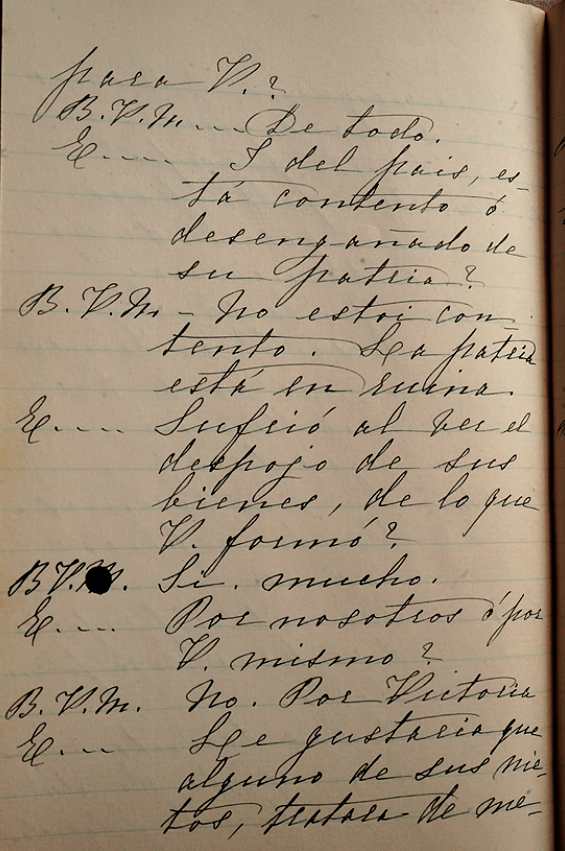 para V.?
B.V.M... De todo.
E.... I del pais, es-
tá contento ó
desengañado de
su patria?
B.V.M. - No estoi con-
tento. La patria
está en ruina.
E.... Sufrió al ver el
despojo de sus
bienes, de lo que
V. formó?
B.V.M. Si. mucho.
E.... Por nosotros ó por
V. mismo?
B.V.M. No. Por Victoria
E... Le gustaria que
alguno de sus nie-
tos, tratara de me-